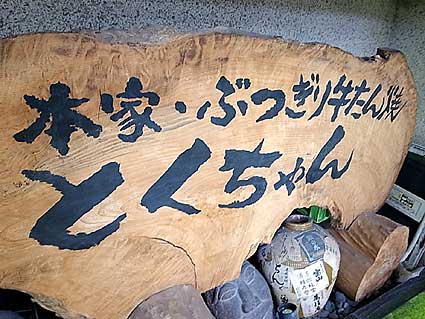 本家・ぶつぎり牛たん焼
とくちゃん